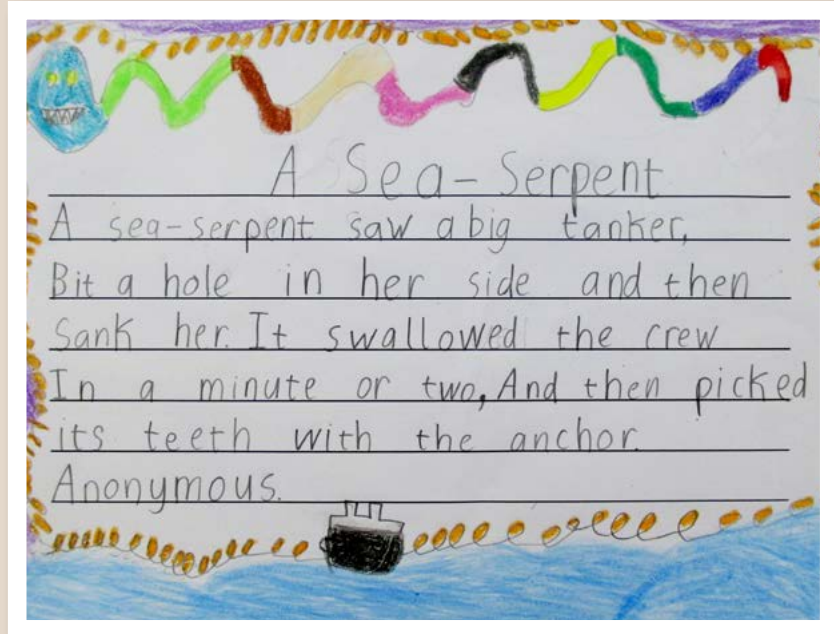 A Sea-Serpent
A sea-serpent saw a big tanker,
Bit a hole in her side and then
Sank her. It swallowed the crew
In a minute or two, And then picked
its teeth with the anchor.
Anonymous.